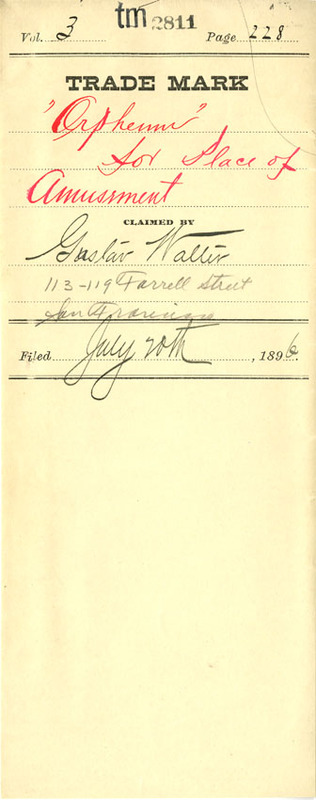 tm 2811
Vol. 3 Page 228
TRADE MARK
"Orpheum"
for Place of
Amusement
CLAIMED BY
Gustav Walter
113-119 Farrell Street
San Francisco
Filed July 20th, 1896.